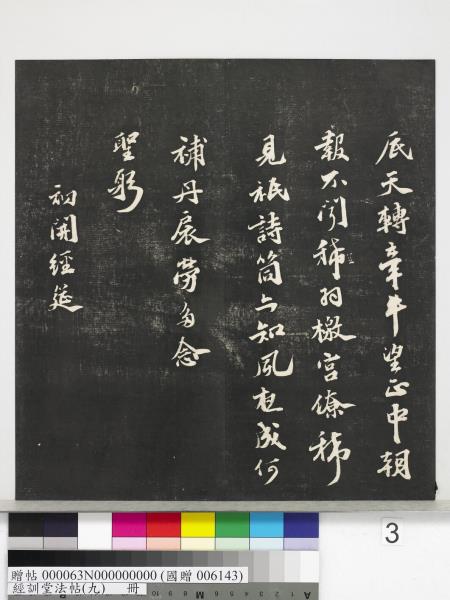 底天轉牽牛望正中朝
報不聞稀羽檄宮僚稀
見祇詩筒與知風憲成何
補丹扆勞多念
聖躬
初開經筵
3
贈帖 000063N000000000 (國贈 006143)
經訓堂法帖(九) 冊